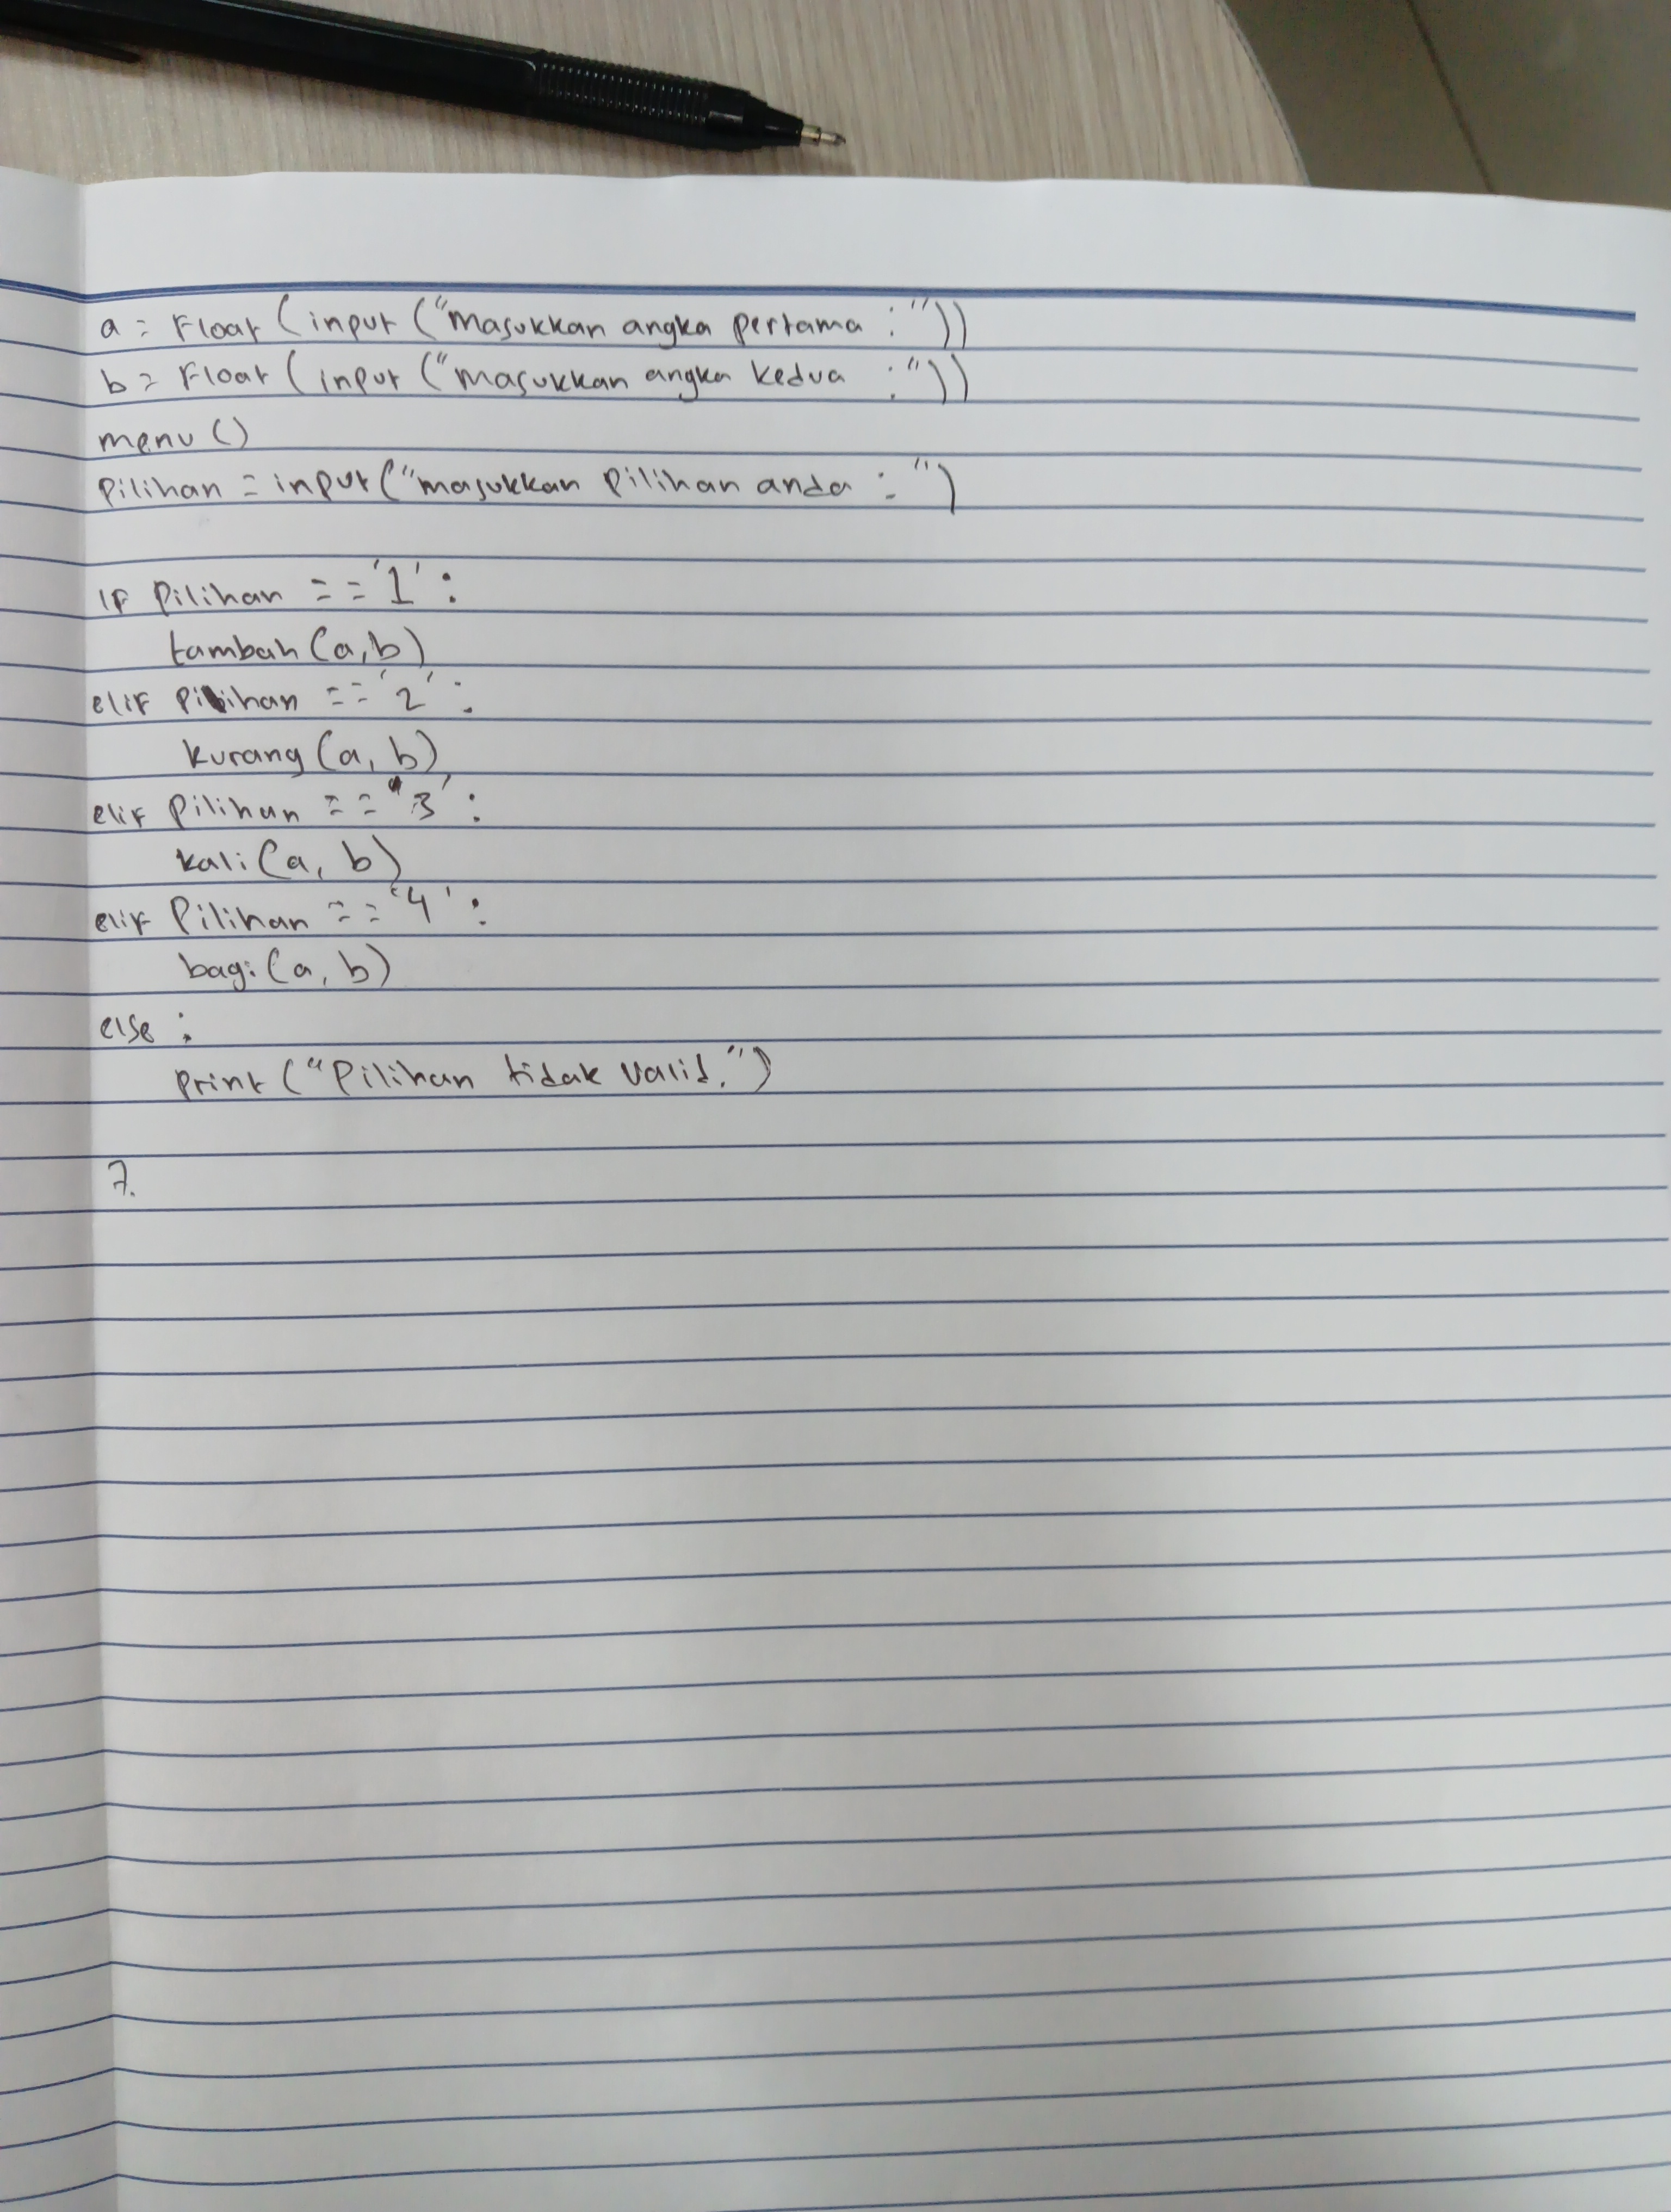 a = Float (input ("masukkan angka pertama : "))
b = Float (input ("masukkan angka kedua : "))
menu ()
Pilihan = input("masukkan Pilihan anda : ")
If Pilihan == '1' :
tambah (a,b)
elif Pilihan == '2' :
kurang (a, b)
elif Pilihan == '3' :
kali (a, b)
elif Pilihan == '4' :
bagi (a, b)
else :
Print ("Pilihan tidak valid.")
7.